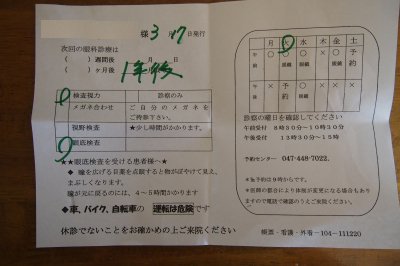 様 3月7日発行
次回の眼科診療は
( ) 週間後 月 日
( ) ヶ月後 1年後
検査視力 診察のみ
メガネ合わせ ご自分のメガネを
ご持参下さい。
視野検査 ★少し時間がかかります。
眼底検査
★★眼底検査を受ける患者様へ★
瞳を広げる目薬を点眼すると物がぼやけて見え、
まぶしくなります。
瞳が元に戻るのには、4~5時間かかります
◆車、バイク、自転車の 運転は危険です
休診でないことをお確かめの上ご来院ください
月 火 水 木 金 土
午前 ○ ○ ○ ○ ○ 予約
午後 予約
診察の曜日を確認してください
午前受付 8時30分~10時30分
午後受付 13時30分~15時
予約センター 047-448-7022.
*★予約は9時からです。
*医師の都合により休診が変更になる場合もあり
ますので電話で確認のうえご来院ください。
帳票・看護・外看-104-111220